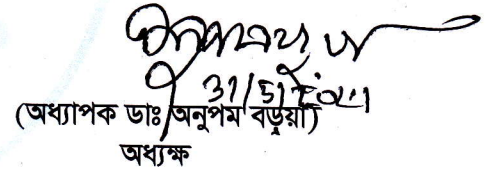 31/5/2021
(অধ্যাপক ডাঃ অনুপম বড়ুয়া)
অধ্যক্ষ